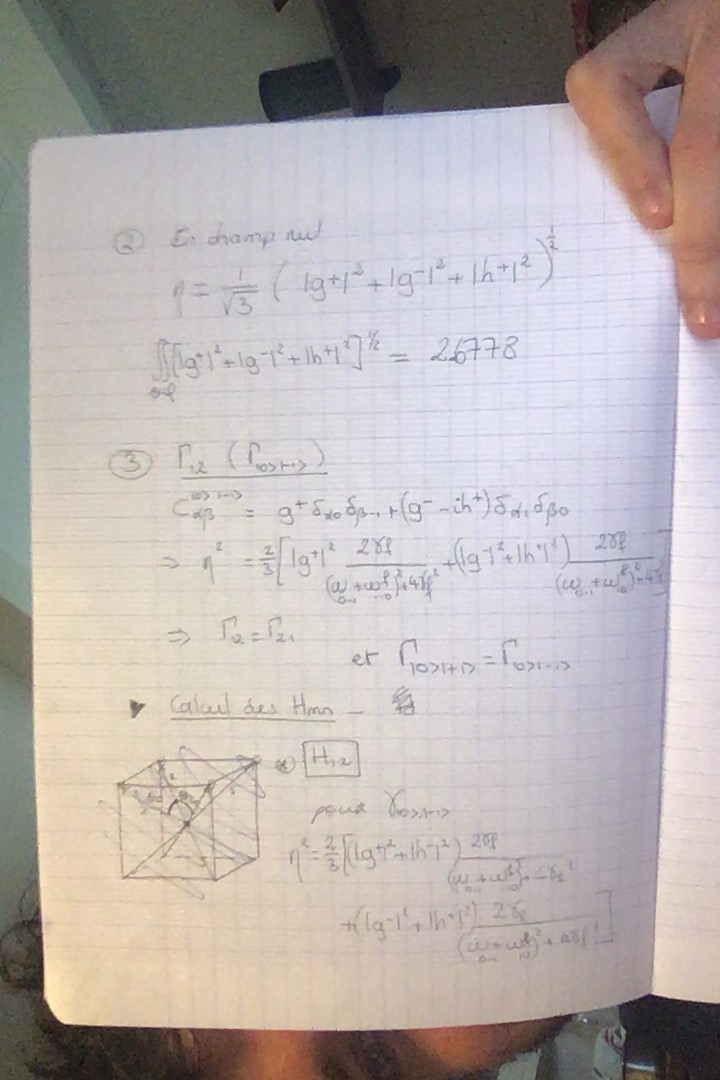 ② En champ nul
η = 1/√3 ( |g+|² + |g-|² + |h+|² )^1/2
∬[|g+|² + |g-|² + |h+|²]^1/2 = 26778
③ Γ12 ( Γ|0>|-1> )
C αβ^|0>|-1> = g+ δα0 δβ-1 + (g- - ih+) δα1 δβ0
⇒ η² = 2/3 [ |g+|² 2γf / ((ω0-1 + ω-10^f)² + 4γf²) + (|g-|² + |h+|²) 2γf / ((ω0-1 + ω10^f)² + 4γf²) ]
⇒ Γ12 = Γ21
et Γ|0>|+1> = Γ|0>|-1>
▸ Calcul des Hmn -
H12
pour γ|0>|-1>
η² = 2/3 [ (|g+|² + |h-|²) 2γf
+ (|g-|² + |h+|²) 2γf / ((ω0-1 + ω10^f)² + 4γf²) ]